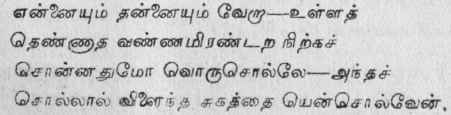 என்னையும் தன்னையும் வேறு—உள்ளத்
தெண்ணாத வண்ணமிரண்டற நிற்கச்
சொன்னதுமோ வொருசொல்லே—அந்தச்
சொல்லால் விளைந்த சுகத்தை யென்சொல்வேன்.